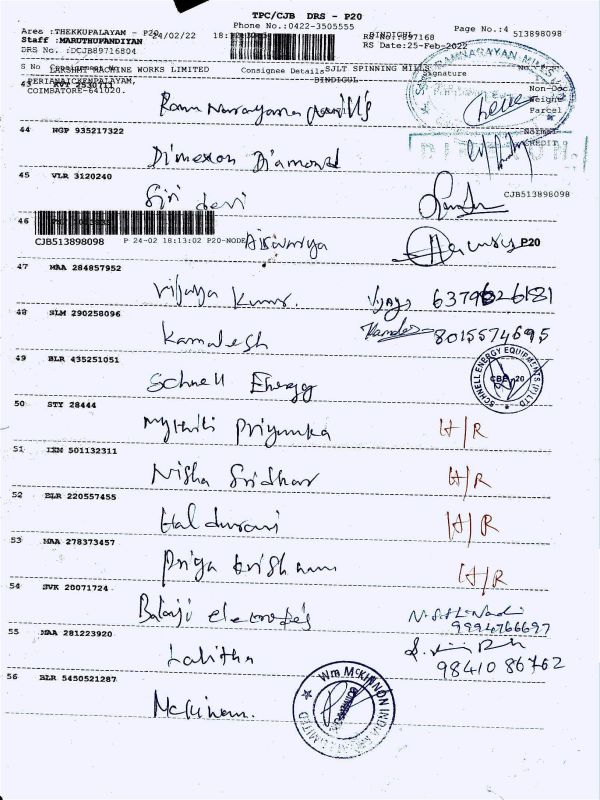 TPC/CJB DRS - P20
Phone No.:0422-3505555
Area :THEKKUPALAYAM - P20
24/02/22
Page No.:4
513898098
Staff: MARUTHUPANDIYAN
RS No.:897168
DRS No. :DCJB89716804
RS Date:25-Feb-2022
S No
LAKSHMI MACHINE WORKS LIMITED
Consignee Details
SJLT SPINNING MILLS
Signature
PERIANAICKENPALAYAM,
DINDIGUL
COIMBATORE-641020.
Non-Doc
Weight
Parcel
Normal
CREDIT
43 KVT 2530711
Rama Narayana Mills
44 NGP 935217322
Dimexon Diamond
45 VLR 3120240
Siri devi
CJB513898098
46
CJB513898098 P 24-02 18:13:02 P20-NODE
Aiswariya
P20
47 MAA 284857952
Vijaya Kumar.
Vijay
48 SLM 290258096
Kamalesh
8015574695
49 BLR 435251051
Schnell Energy
SCHNELL ENERGY EQUIPMENTS (P) LTD
CBE-20
50 STY 28444
Mythili Priyanka
H/R
51 IXM 501132311
Nisha Sridhar
H/R
52 BLR 220557455
Haldurai
H/R
53 MAA 278373457
Priya Krishnan
H/R
54 SVK 20071724
Balaji electronics
9994766697
55 MAA 281223920
Lalitha
98410 86762
56 BLR 5450521287
Mckinon.
Wm. McKINNON INDIA PRIVATE LIMITED